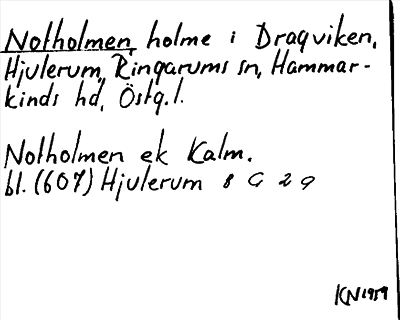 Notholmen, holme i Dragviken,
Hjulerum, Ringarums sn, Hammar-
kinds hd, Östg.l.
Notholmen ek Kalm.
bl. (607) Hjulerum 8 G 2 g
KN 1959